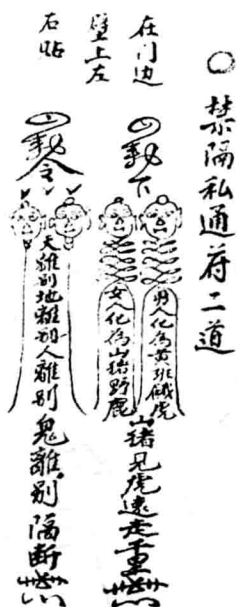 ○禁隔私通苻二道
在门边
壁上左
右貼
勅下
男人化為黄班餓虎
女人化為山猪野鹿
山猪見虎遠走重
勅令
天離别地離别人離别鬼離别隔断